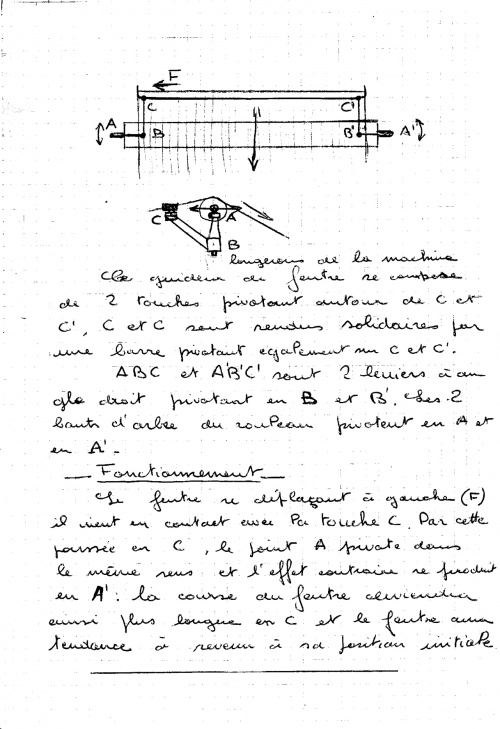 F
C C'
A B B' A'
C A
B
longerons de la machine
Le guideur de feutre se compose
de 2 touches pivotant autour de C et
C', C et C sont rendus solidaires par
une barre pivotant egalement sur C et C'.
ABC et A'B'C' sont 2 leviers à an
gle droit pivotant en B et B'. Les 2
bouts d'arbre du rouleau pivotent en A et
en A'.
Fonctionnement
Le feutre se déplaçant à gauche (F)
il vient en contact avec la touche C. Par cette
poussée en C, le joint A pivote dans
le même sens et l'effet contraire se produit
en A'. la course du feutre deviendra
ainsi plus longue en C et le feutre aura
tendance à revenir à sa position initiale